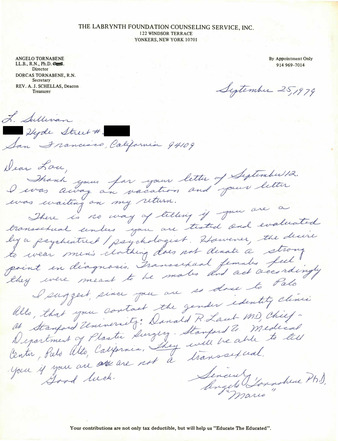 THE LABRYNTH FOUNDATION COUNSELING SERVICE, INC.
122 WINDSOR TERRACE
YONKERS, NEW YORK 10701
ANGELO TORNABENE
LL.B., R.N., Ph.D.
Director
DORCAS TORNABENE, R.N.
Secretary
REV. A. J. SCHELLAS, Deacon
Treasurer
By Appointment Only
914 969-7014
September 25, 1979
L. Sullivan
Hyde Street #
San Francisco, California 94109
Dear Lou,
Thank you for your letter of September 12.
I was away on vacation and your letter
was waiting on my return.
There is no way of telling if you are a
transsexual unless you are tested and evaluated
by a psychiatrist/psychologist. However, the desire
to wear men's clothing does not denote a strong
point in diagnosis. Transsexual females feel
they were meant to be males and act accordingly
I suggest, since you are so close to Palo
Alto, that you contact the gender identity clinic
at Stanford University: Donald R Laub MD, Chief-
Department of Plastic Surgery, Stanford U Medical
Center, Palo Alto, California. They will be able to tell
you if you are or are not a transsexual.
Good luck.
Sincerely
Angelo Tornabene Ph.D.
"Mario"
Your contributions are not only tax deductible, but will help us "Educate The Educated".